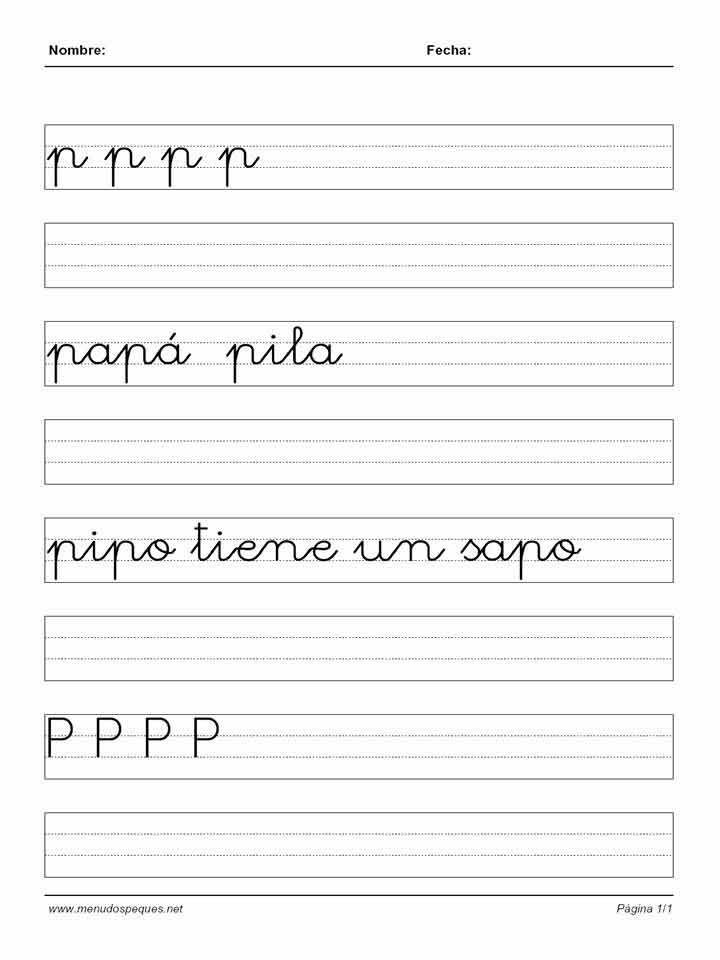 Nombre: Fecha:
p p p p
papá pila
pipo tiene un sapo
P P P P
www.menudospeques.net Página 1/1